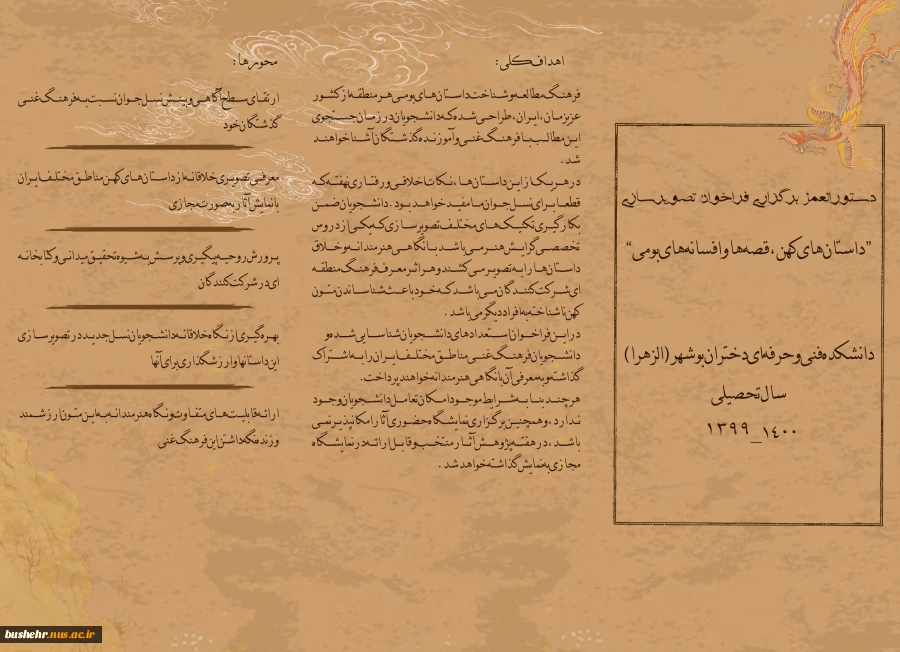 دستورالعمل برگزاری فراخوان تصویرسازی
"داستان‌های کهن، قصه‌ها و افسانه‌های بومی"
دانشکده فنی و حرفه‌ای دختران بوشهر (الزهرا)
سال تحصیلی
۱۳۹۹_۱۴۰۰
اهداف کلی:
فرهنگ مطالعه و شناخت داستان‌های بومی هر منطقه از کشور
عزیزمان، ایران، طراحی شده که دانشجویان در زمان جستجوی
این مطالب با فرهنگ غنی و آموزنده گذشتگان آشنا خواهند
شد.
در هر یک از این داستان‌ها، نکات اخلاقی و رفتاری نهفته که
قطعا برای نسل جوان ما مفید خواهد بود. دانشجویان ضمن
بکارگیری تکنیک‌های مختلف تصویرسازی که یکی از دروس
تخصصی گرایش هنر می باشد با نگاهی هنرمندانه و خلاق
داستان‌ها را به تصویر می کشند و هر اثر معرف فرهنگ منطقه
ای شرکت کنندگان می باشد که خود باعث شناساندن متون
کهن ناشناخته به افراد دیگر می باشد.
در این فراخوان استعدادهای دانشجویان شناسایی شده و
دانشجویان فرهنگ غنی مناطق مختلف ایران را به اشتراک
گذاشته و به معرفی آن با نگاهی هنرمندانه خواهند پرداخت.
هر چند بنا به شرایط موجود امکان تعامل دانشجویان وجود
ندارد، و همچنین برگزاری نمایشگاه حضوری آثار امکانپذیر نمی
باشد، در هفته پژوهش آثار منتخب و قابل ارائه در نمایشگاه
مجازی به نمایش گذاشته خواهد شد.
محورها:
ارتقای سطح آگاهی و بینش نسل جوان نسبت به فرهنگ غنی
گذشتگان خود
معرفی تصویری خلاقانه از داستان‌های کهن مناطق مختلف ایران
با نمایش آثار به صورت مجازی
پرورش روحیه پیگیری و پرسش به شیوه تحقیق میدانی و کتابخانه
ای در شرکت کنندگان
بهره‌گیری از نگاه خلاقانه دانشجویان نسل جدید در تصویرسازی
این داستانها و ارزشگذاری برای آنها
ارائه قابلیت‌های متفاوت و نگاه هنرمندانه به این متون ارزشمند
و زنده نگه داشتن این فرهنگ غنی
bushehr.nus.ac.ir